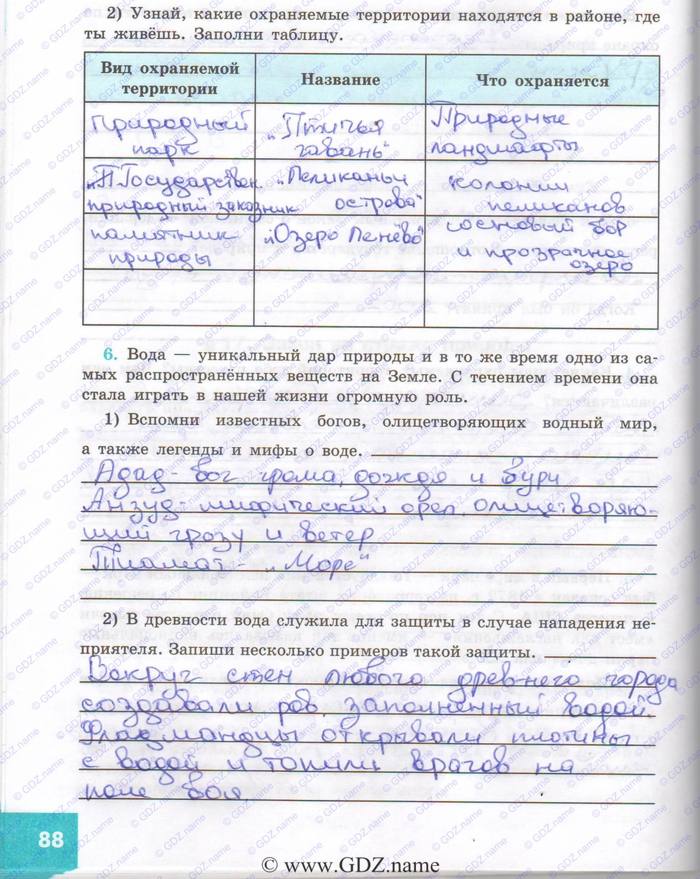 2) Узнай, какие охраняемые территории находятся в районе, где
ты живёшь. Заполни таблицу.
Вид охраняемой территории
Название
Что охраняется
Природный парк
„Птичья гавань"
Природные ландшафты
„Государствен. природный заказник
„Пеликаньи острова"
колонии пеликанов
памятник природы
„Озеро Ленёво"
сосновый бор и прозрачное озеро
6. Вода — уникальный дар природы и в то же время одно из са-
мых распространённых веществ на Земле. С течением времени она
стала играть в нашей жизни огромную роль.
1) Вспомни известных богов, олицетворяющих водный мир,
а также легенды и мифы о воде.
Адад - бог грома, дождя и бури
Анзуд - мифический орел, олицетворяю-
щий грозу и ветер
Тиамат - „Море"
2) В древности вода служила для защиты в случае нападения не-
приятеля. Запиши несколько примеров такой защиты.
Вокруг стен любого древнего города
создавали ров, заполненный водой.
Фламандцы открывали плотины
с водой и топили врагов на
поле боя
88
© www.GDZ.name